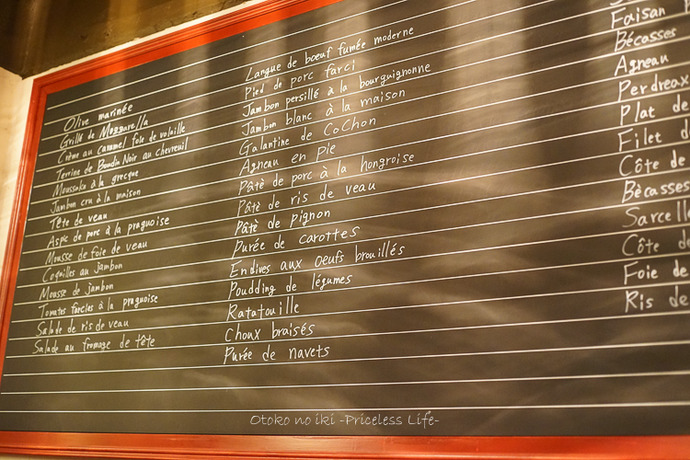 Olive marinée
Grillé de Mozzarella
Crème au caramel foie de volaille
Terrine de Boudin Noir au chevreuil
Moussaka à la grecque
Jambon cru à la maison
Tête de veau
Aspic de porc à la praguoise
Mousse de foie de veau
Coquilles au jambon
Mousse de jambon
Tomates farcies à la praguoise
Salade de ris de veau
Salade au fromage de tête
Langue de bœuf fumée moderne
Pied de porc farci
Jambon persillé à la bourguignonne
Jambon blanc à la maison
Galantine de Cochon
Agneau en pie
Pâtè de porc à la hongroise
Pâtè de ris de veau
Pâtè de pignon
Purée de carottes
Endives aux oeufs brouillés
Poudding de légumes
Ratatouille
Choux braisés
Purée de navets
Faisan
Bécasses
Agneau
Perdreax
Plat de
Filet d
Côte de
Bècasses
Sarcell
Côte d
Foie de
Ris de
Otoko no iki -Priceless Life-